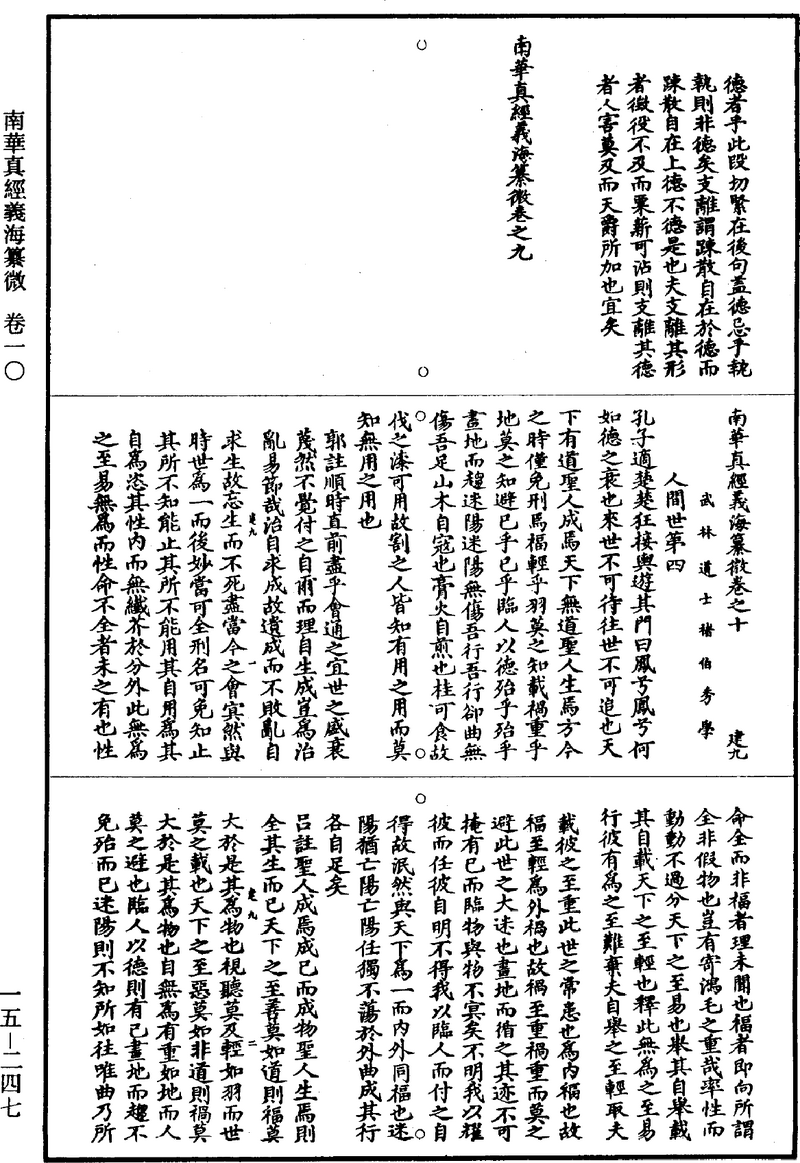 南華真經義海纂微　卷一〇
德者乎此段切緊在後句蓋德忌乎執
執則非德矣支離謂踈散自在於德而
踈散自在上德不德是也夫支離其形
者徵役不及而粟薪可沾則支離其德
者人害莫及而天爵所加也宜矣
南華真經義海纂微卷之九
南華真經義海纂微卷之十　建九
武林道士褚伯秀學
人間世第四
孔子適楚楚狂接輿遊其門曰鳳兮鳳兮何
如德之衰也來世不可待往世不可追也天
下有道聖人成焉天下無道聖人生焉方今
之時僅免刑焉福輕乎羽莫之知載禍重乎
地莫之知避已乎已乎臨人以德殆乎殆乎
畫地而趨迷陽迷陽無傷吾行吾行卻曲無
傷吾足山木自寇也膏火自煎也桂可食故
伐之漆可用故割之人皆知有用之用而莫
知無用之用也
郭註順時直前盡乎會通之宜世之盛衰
蔑然不覺付之自爾而理自生成豈為治
亂易節哉治自求成故遺成而不敗亂自
求生故忘生而不死盡當今之會冥然與
時世為一而後妙當可全刑名可免知止
其所不知能止其所不能用其自用為其
自為恣其性內而無纖芥於分外此無為
之至易無為而性命不全者未之有也性
命全而非福者理未聞也福者即向所謂
全非假物也豈有寄鴻毛之重哉率性而
動動不過分天下之至易也舉其自舉載
其自載天下之至輕也釋此無為之至易
行彼有為之至難棄夫自舉之至輕取夫
載彼之至重此世之常患也為內福也故
福至輕為外禍也故禍至重禍重而莫之
避此世之大迷也畫地而循之其迹不可
掩有己而臨物與物不冥矣不明我以耀
彼而任彼自明不得我以臨人而付之自
得故泯然與天下為一而內外同福也迷
陽猶亡陽亡陽任獨不蕩於外曲成其行
各自足矣
呂註聖人成焉成己而成物聖人生焉則
全其生而已天下之至善莫如道則福莫
大於是其為物也視聽莫及輕如羽而世
莫之載也天下之至惡莫如非道則禍莫
大於是其為物也自無為有重如地而人
莫之避也臨人以德則有己畫地而趨不
免殆而已迷陽則不知所如往唯曲乃所
建九　一
建九　二
一五—二四七